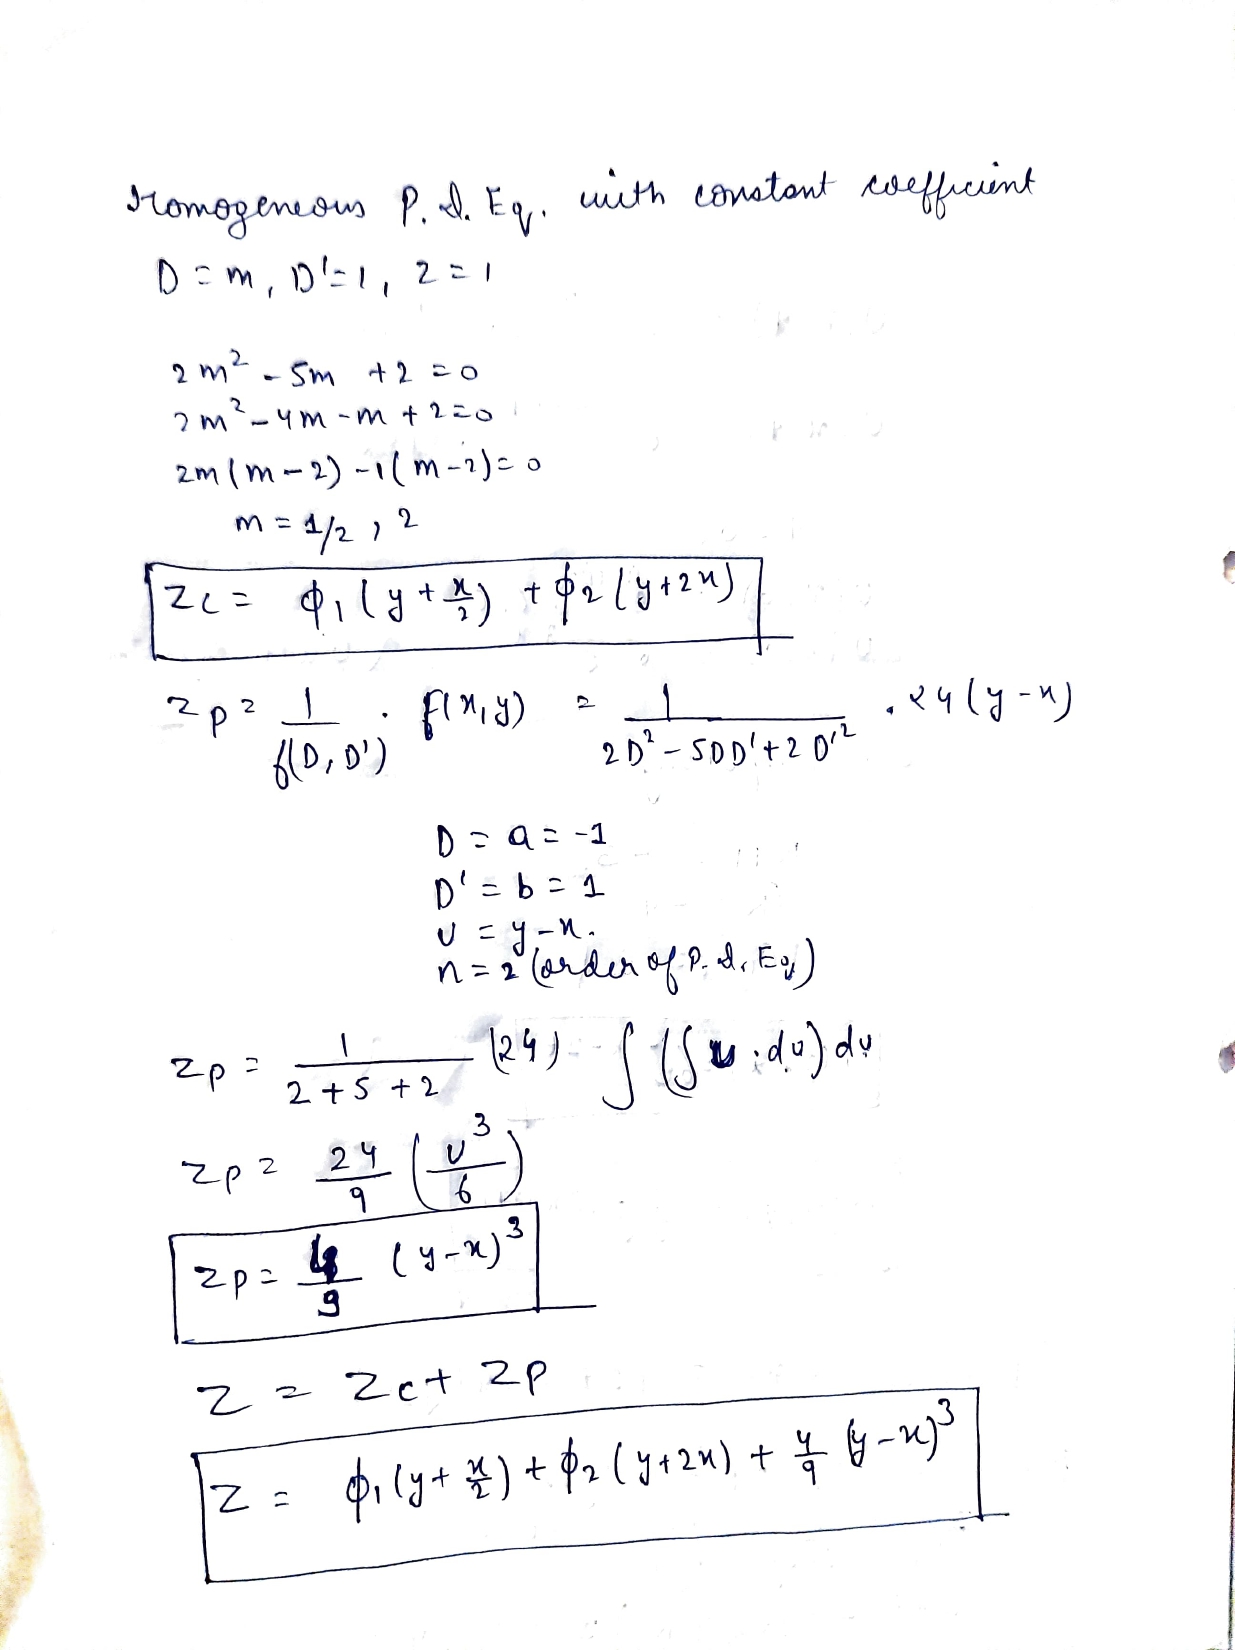 Homogeneous P. d. Eq. with constant coefficient
D = m, D' = 1, z = 1
2m² - 5m + 2 = 0
2m² - 4m - m + 2 = 0
2m(m - 2) - 1(m - 2) = 0
m = 1/2, 2
zc = ϕ₁(y + x/2) + ϕ₂(y + 2x)
zp = 1/f(D, D') . f(x, y) = 1/(2D² - 5DD' + 2D'²) . 24(y - x)
D = a = -1
D' = b = 1
u = y - x.
n = 2 (order of P. d. Eq)
zp = 1/(2 + 5 + 2) (24) ∫(∫u.du) du
zp = 24/9 (u³/6)
zp = 4/9 (y - x)³
z = zc + zp
z = ϕ₁(y + x/2) + ϕ₂(y + 2x) + 4/9 (y - x)³